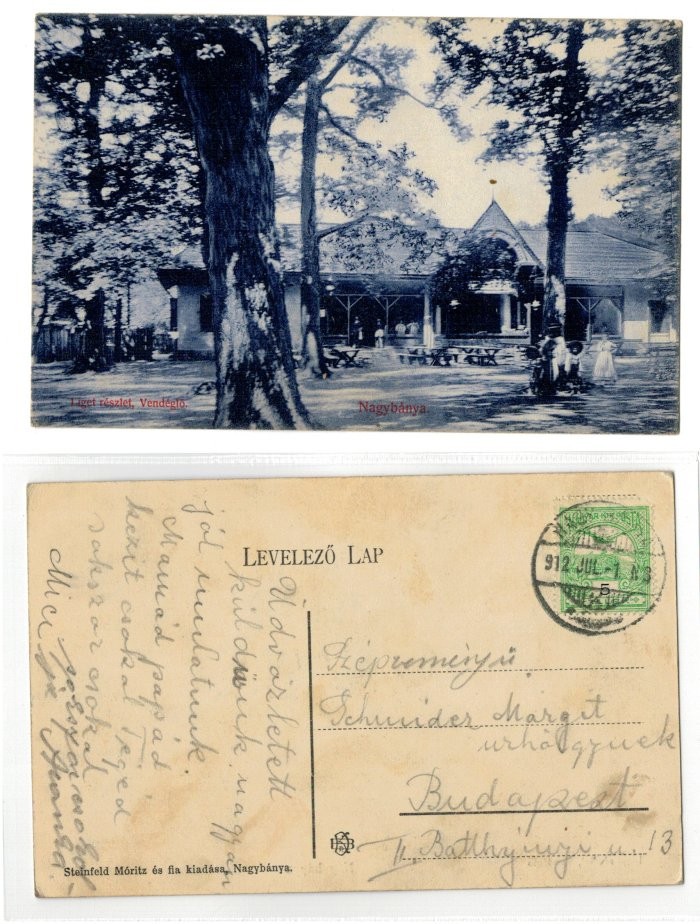 Liget részlet, Vendéglő.
Nagybánya.
LEVELEZŐ LAP
MAGYAR KIR. POSTA
5
912 JUL.-1
Üdvözletett
küldünk nagyon
jól mulatunk.
Mamád papád
kezit csokol Téged
sokszor csokol
Mici
Szépreményű
Schneider Margit
urhölgynek
Budapest
II. Batthyányi u. 13
Steinfeld Móritz és fia kiadása, Nagybánya.